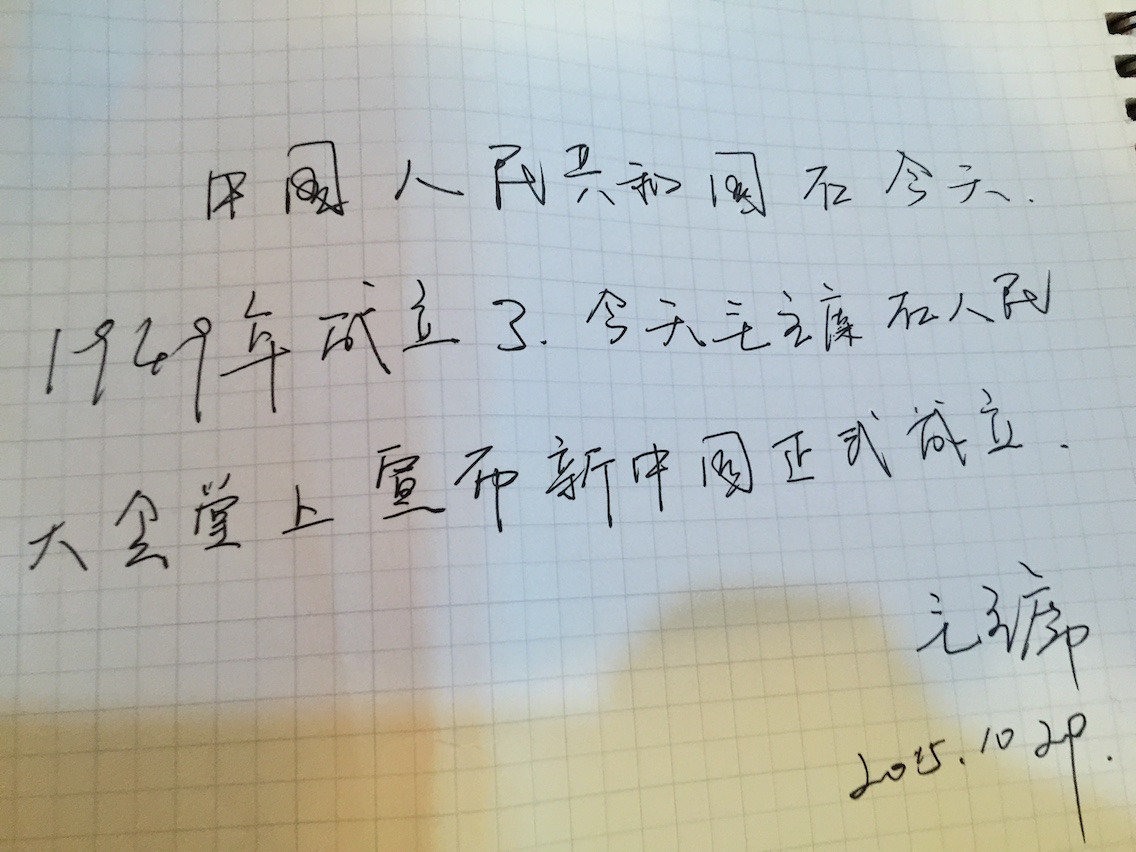 中国人民共和国在今天.
1949年成立了.今天毛主席在人民
大会堂上宣布新中国正式成立.
毛主席
2015.10 29.